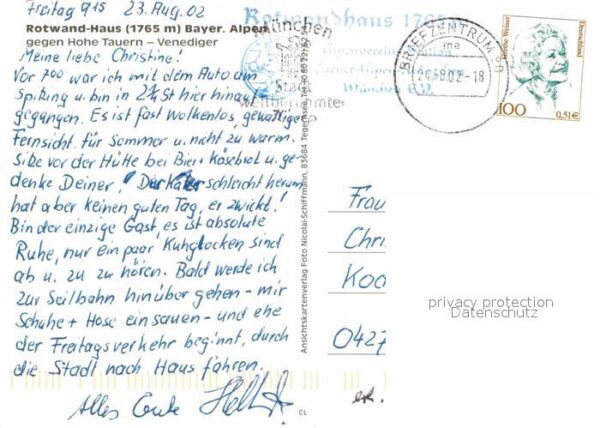 Freitag 9¹⁵ 23. Aug. 02
Rotwand-Haus (1765 m) Bayer. Alpen
gegen Hohe Tauern – Venediger
Meine liebe Christine!
Vor 7⁰⁰ war ich mit dem Auto am
Spitzing u. bin in 2¼ St hier hinauf
gegangen. Es ist fast wolkenlos, gewaltige
Fernsicht. Für Sommer u. nicht zu warm.
Sitze vor der Hütte bei Bier + Käsebrot u. ge-
denke Deiner! Der Kater schleicht herum
hat aber keinen guten Tag, er zwickt!
Bin der einzige Gast, es ist absolute
Ruhe, nur ein paar Kuhglocken sind
ab u. zu zu hören. Bald werde ich
zur Seilbahn hinüber gehen - mir
Schuhe + Hose einsauen - und ehe
der Freitagsverkehr beginnt, durch
die Stadt nach Haus fahren.
Alles Gute
Ansichtskartenverlag Foto Nicolai-Schiffmann, 83684 Tegernsee
CL
Rotwandhaus 1765
München
Stadt
BRIEFZENTRUM 80
mc
02-18
Grethe Weiser
Deutschland
100
0,51€
Frau
Chri
Koo
0427
privacy protection
Datenschutz